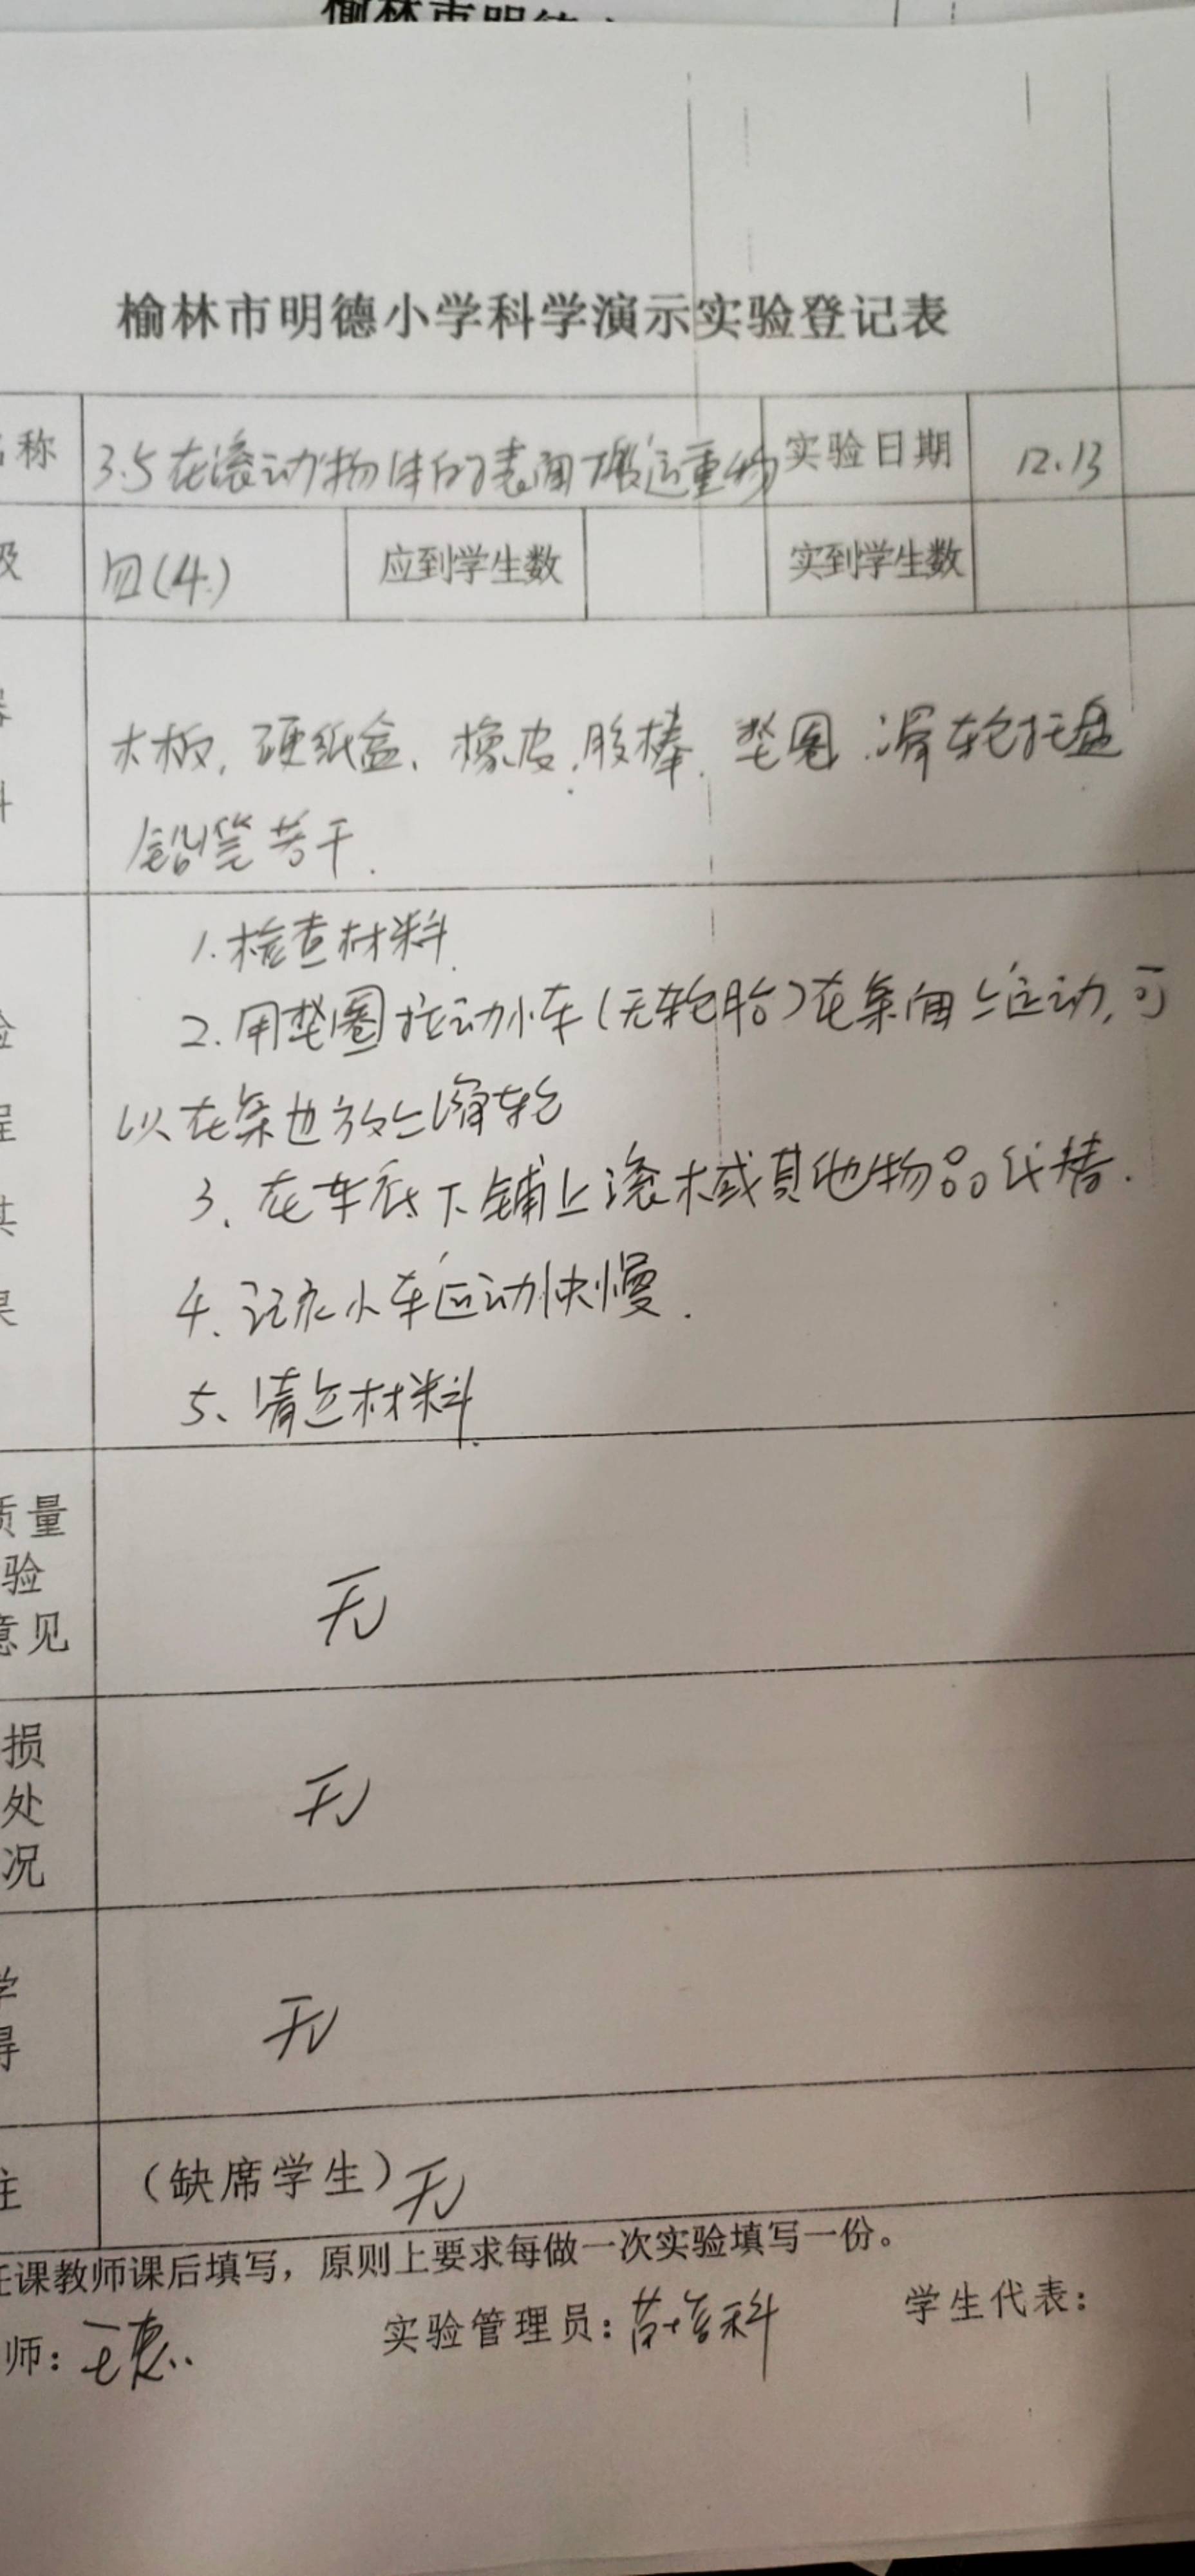 榆林市明德小学科学演示实验登记表
称 3.5在滚动物体的表面搬运重物 实验日期 12.13
级 四(4) 应到学生数 实到学生数
木板、硬纸盒、橡皮、胶棒、垫圈、滑轮托盘
铅笔若干.
1.检查材料
2.用垫圈拉动小车(无轮胎)在桌面上运动,可
以在桌边放上滑轮
3、在车底下铺上滚木或其他物品代替.
4、记录小车运动快慢.
5、清点材料
质量
验
意见
无
损
处
况
无
学
得
无
注 (缺席学生)无
任课教师课后填写，原则上要求每做一次实验填写一份。
师: 实验管理员: 学生代表: